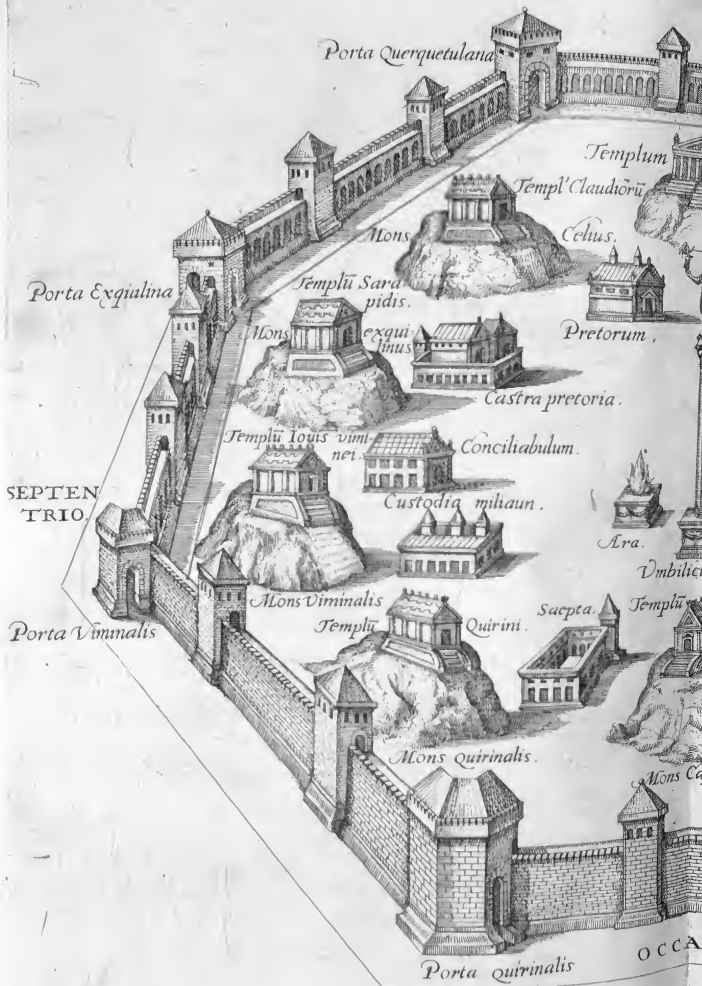 Porta Querquetulana
Templum
Templ' Claudiorũ
Mons Celius.
Porta Exqiulina
Templũ Sara
pidis.
Mons exqui
linus
Pretorum.
Castra pretoria.
Templũ Iouis vimi-
nei.
Conciliabulum.
SEPTEN
TRIO.
Custodia miliaun.
Ara.
Vmbilici
Porta Viminalis
Mons Viminalis
Templũ Quirini.
Saepta.
Templũ
Mons Quirinalis.
Mons Ca
OCCA
Porta Quirinalis